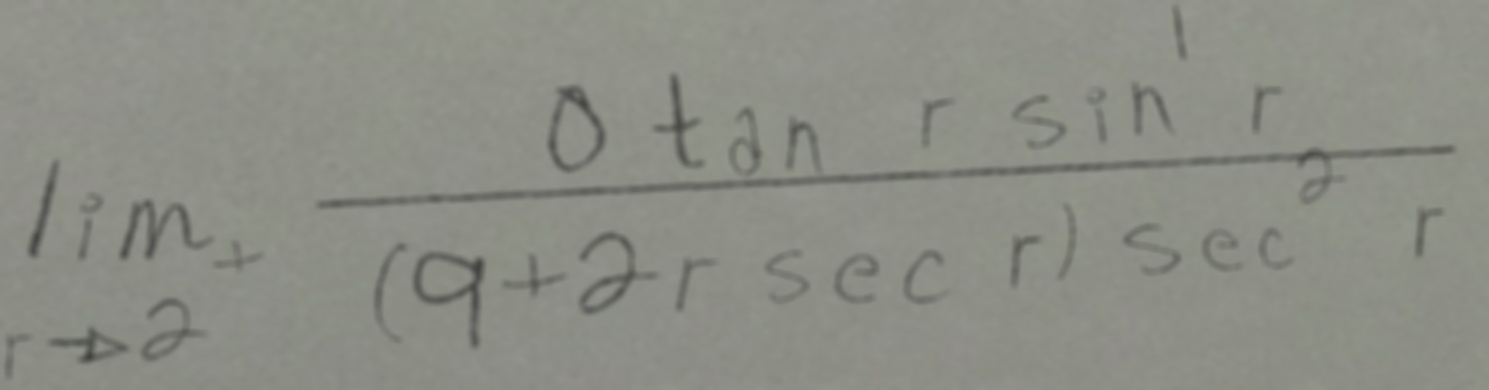 \lim_{r \to 2^+} \frac{0 \tan r \sin^1 r}{(9+2r \sec r) \sec^2 r}